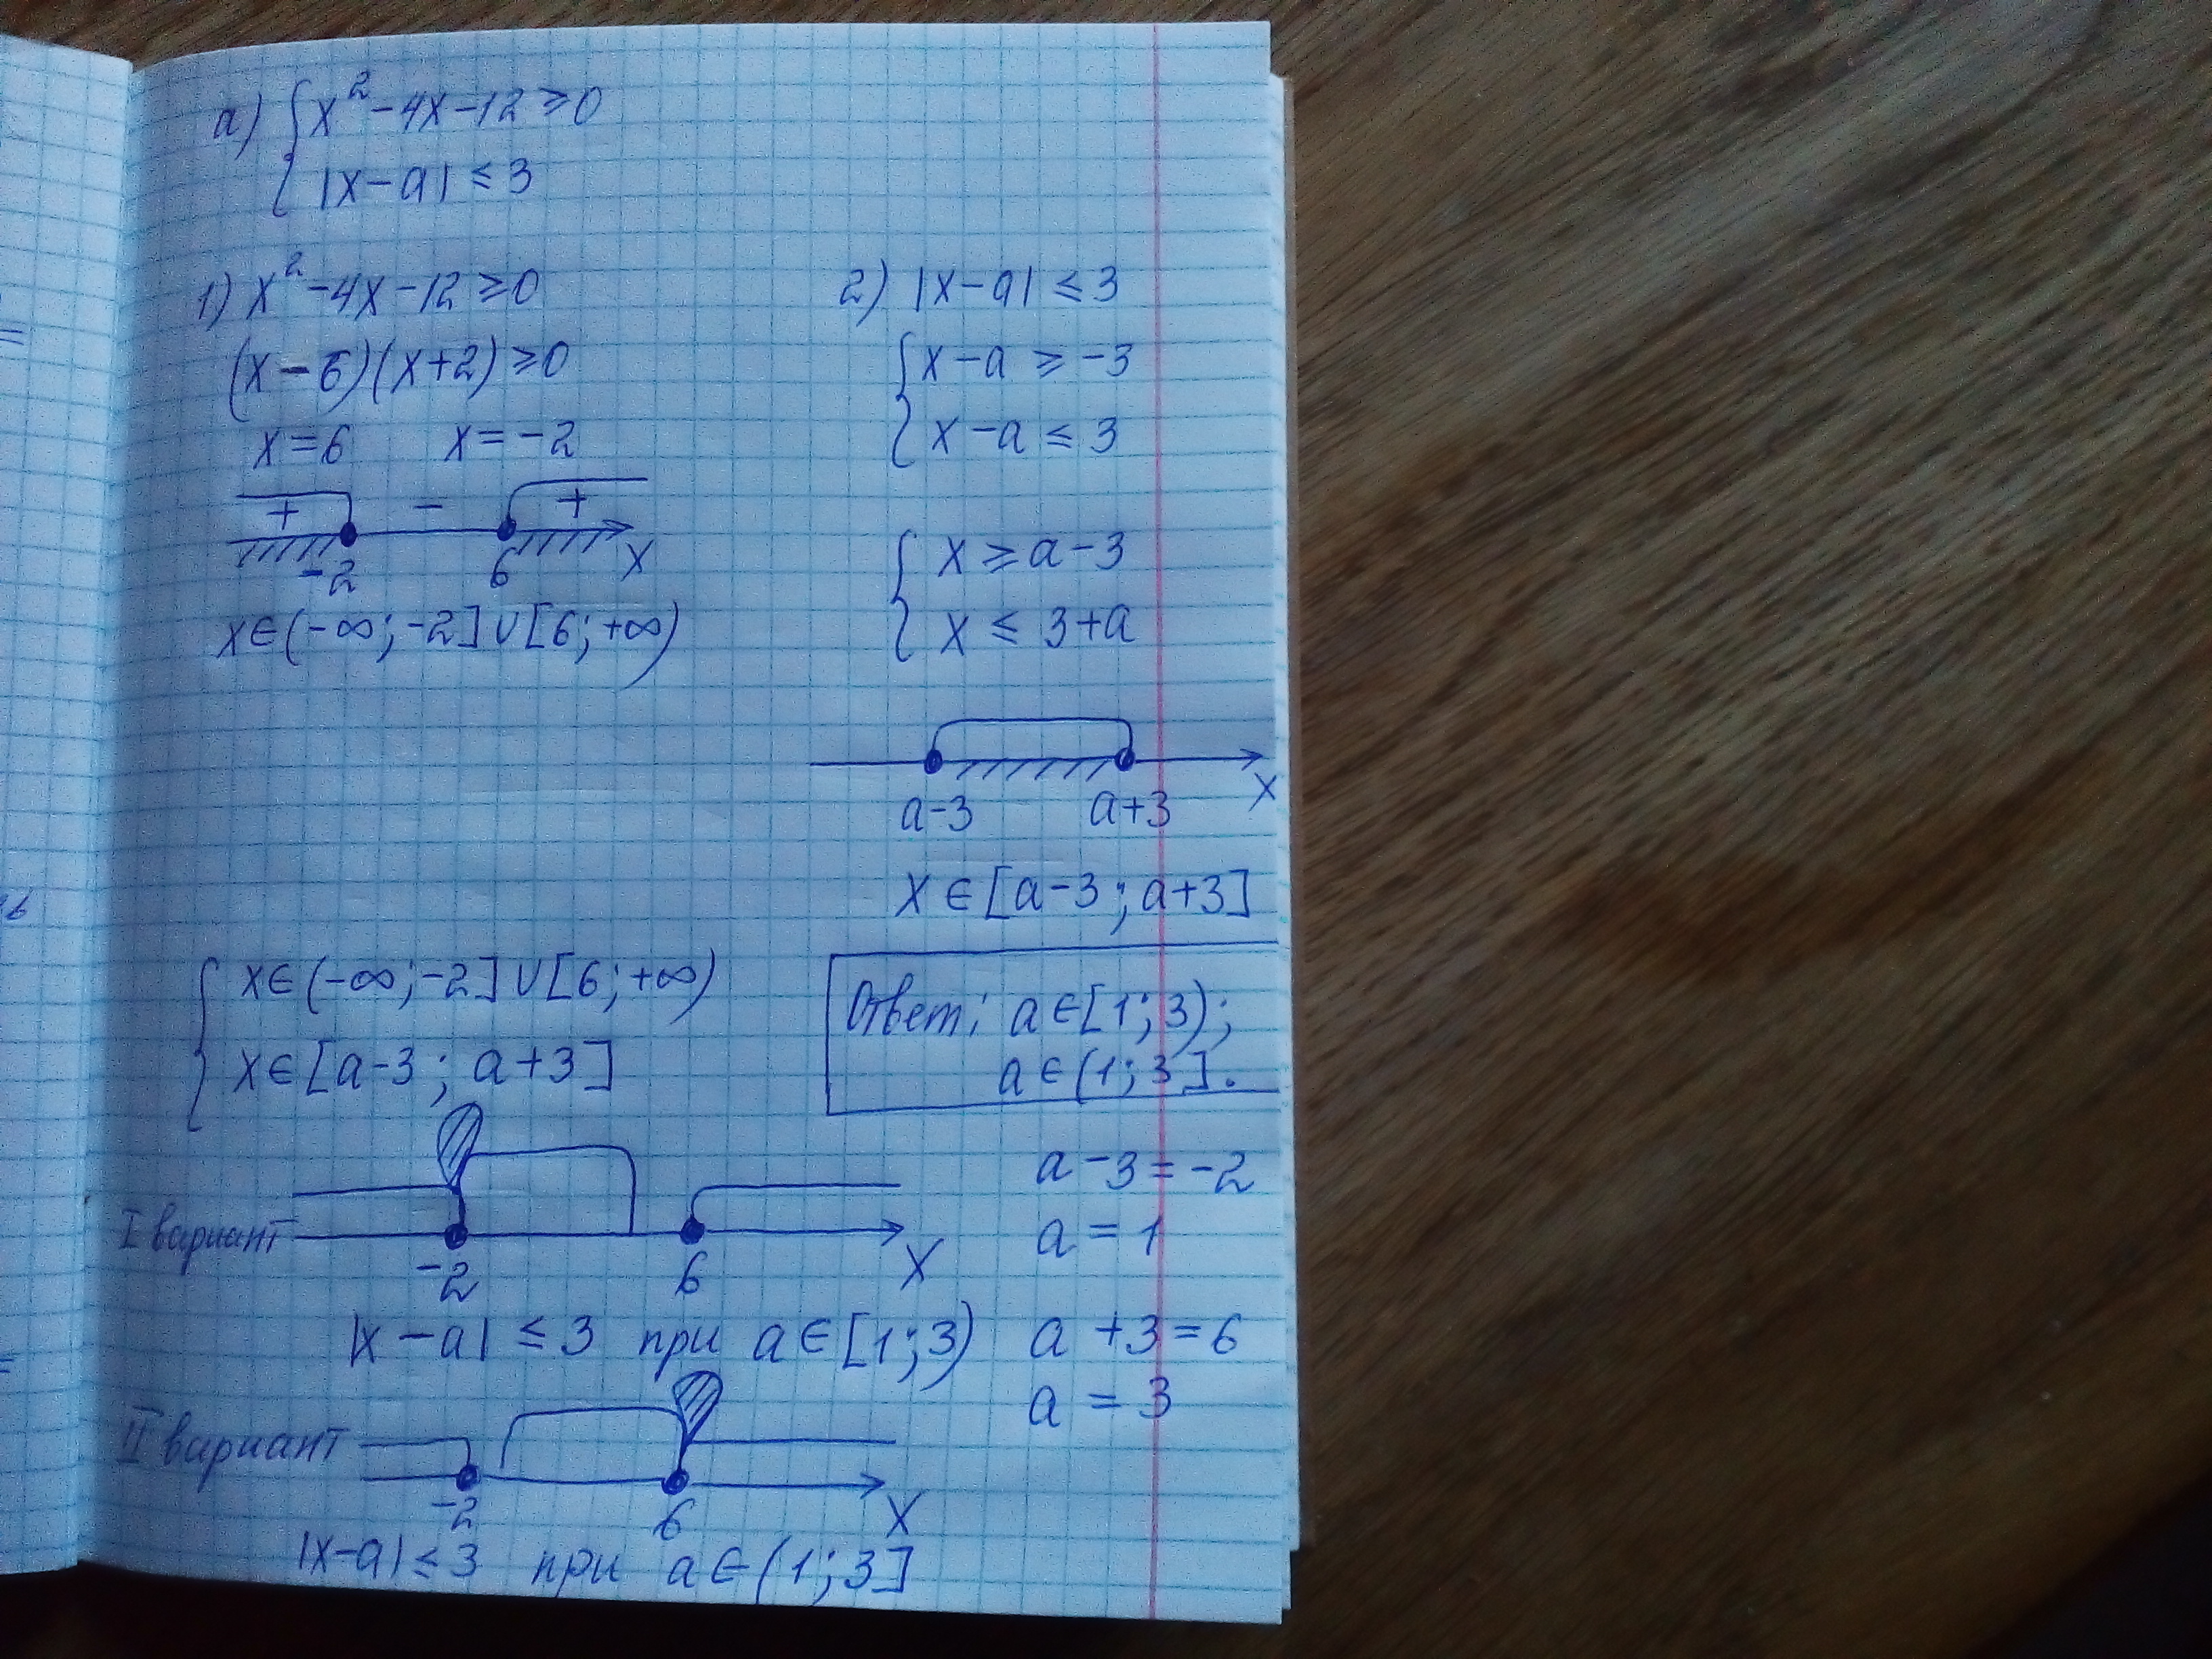 а) { x² - 4x - 12 ≥ 0
|x - a| ≤ 3
1) x² - 4x - 12 ≥ 0
(x - 6)(x + 2) ≥ 0
x = 6 x = -2
+ - +
-2 6 x
x ∈ (-∞; -2] ∪ [6; +∞)
2) |x - a| ≤ 3
{ x - a ≥ -3
x - a ≤ 3
{ x ≥ a - 3
x ≤ 3 + a
a-3 a+3 x
x ∈ [a-3; a+3]
{ x ∈ (-∞; -2] ∪ [6; +∞)
x ∈ [a-3; a+3]
Ответ: a ∈ [1; 3);
a ∈ (1; 3].
I вариант
-2 6 x
|x - a| ≤ 3 при a ∈ [1; 3)
a - 3 = -2
a = 1
a + 3 = 6
a = 3
II вариант
-2 6 x
|x-a| ≤ 3 при a ∈ (1; 3]